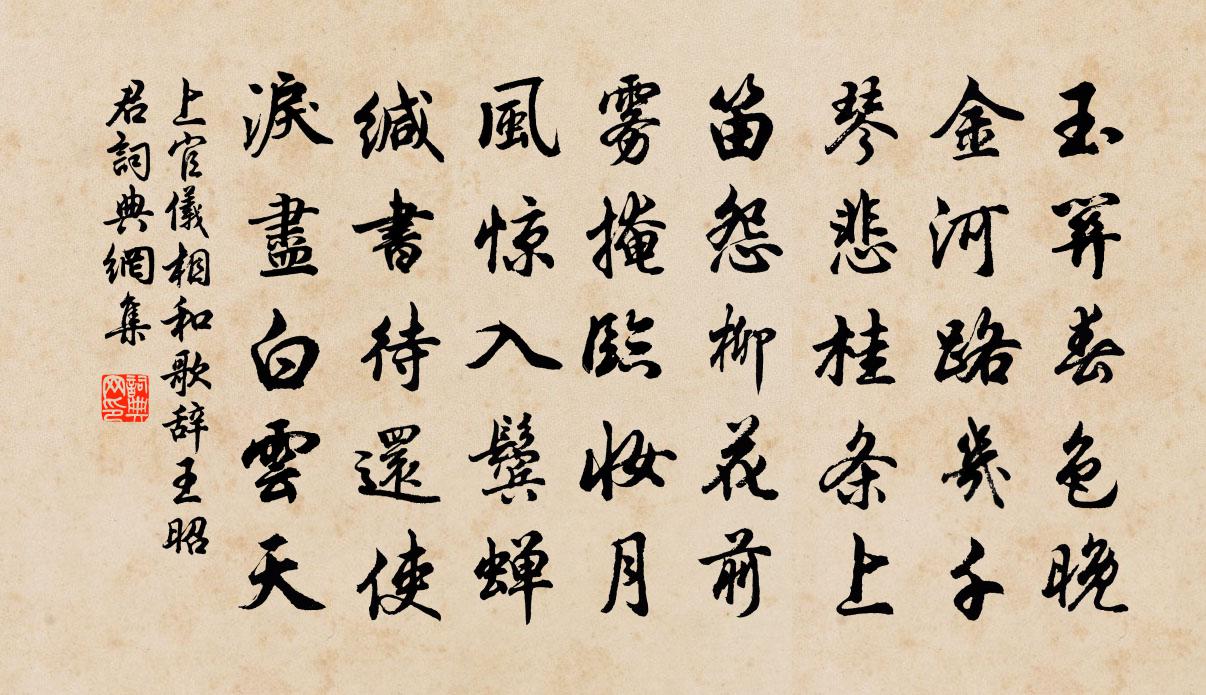 玉關春色晚
金河路幾千
琴悲桂条上
笛怨柳花前
雾掩臨妝月
風惊入鬢蝉
緘書待還使
淚盡白雲天
上官儀相和歌辞王昭
君詞典網集
詞典
网印